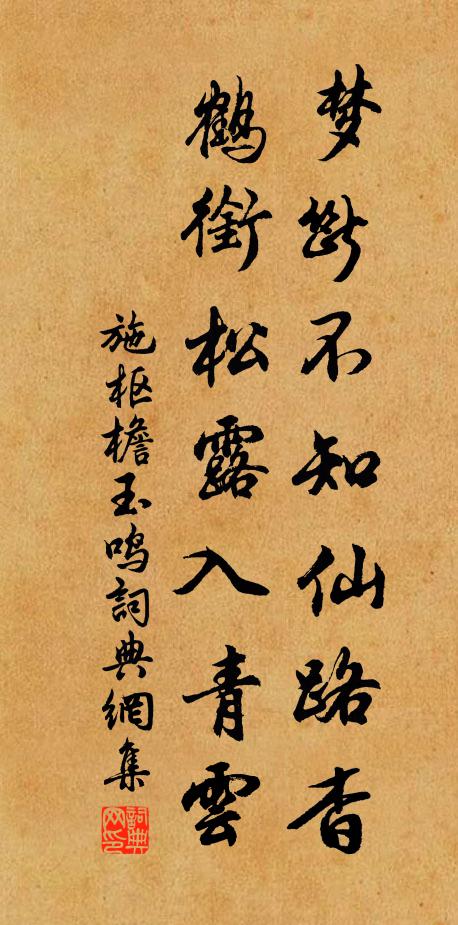 梦断不知仙路杳
鹤衔松露入青雲
施枢檐玉鸣詞典網集
詞典网印